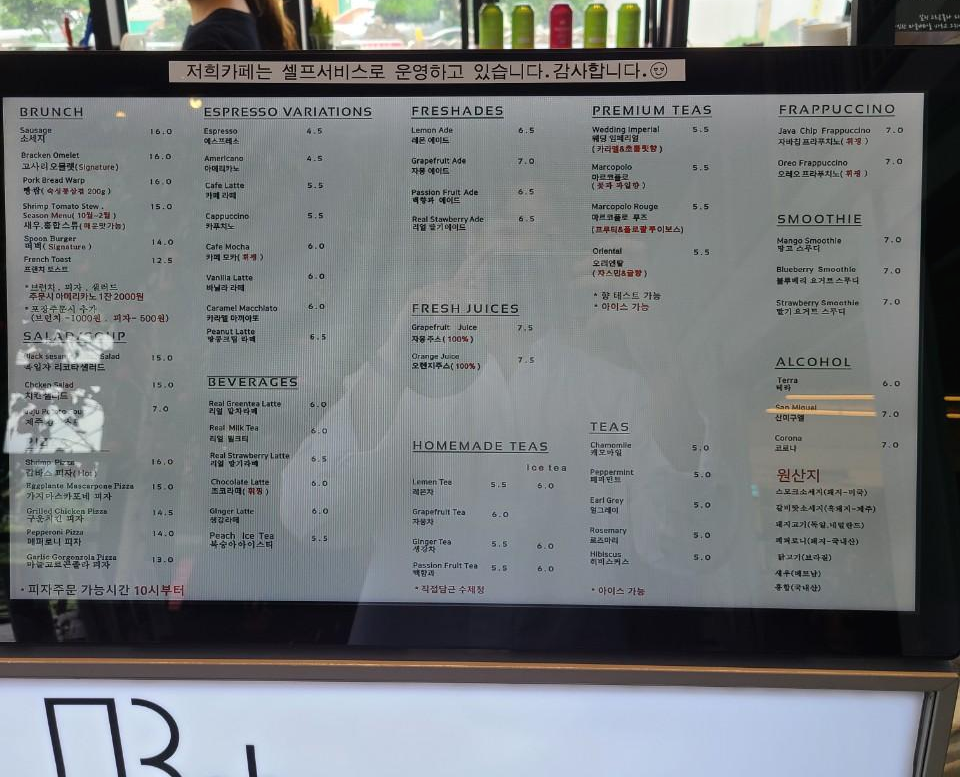 저희카페는 셀프서비스로 운영하고 있습니다.감사합니다.
BRUNCH
Sausage 16.0
소세지
Bracken Omelet 16.0
고사리오믈렛(Signature)
Pork Bread Warp 16.0
빵쌈( 숙성통삼겹 200g )
Shrimp Tomato Stew . 15.0
Season Menu( 10월~2월 )
새우.홍합스튜(매운맛가능)
Spoon Burger 14.0
떠먹( Signature )
French Toast 12.5
프렌치 토스트
* 브런치 . 피자 . 샐러드
주문시아메리카노 1잔 2000원
* 포장주문시 추가
(브런치 -1000원 . 피자- 500원)
SALAD/SOUP
Salad 15.0
흑임자 리코타샐러드
Chcken Salad 15.0
치킨샐러드
Jeju Potato Sou 7.0
제주
피자
Shrimp Pizza 16.0
감바스 피자(Hot)
Eggplante Mascarpone Pizza 15.0
가지마스카포네 피자
Grilled Chicken Pizza 14.5
구운치킨 피자
Pepperoni Pizza 14.0
페퍼로니 피자
Garlic Gorgonzola Pizza 13.0
마늘고르곤졸라 피자
* 피자주문 가능시간 10시부터
ESPRESSO VARIATIONS
Espresso 4.5
에스프레소
Americano 4.5
아메리카노
Cafe Latte 5.5
카페 라떼
Cappuccino 5.5
카푸치노
Cafe Mocha 6.0
카페 모카( 휘핑 )
Vanilla Latte 6.0
바닐라 라떼
Caramel Macchiato 6.0
카라멜 마끼야또
Peanut Latte 6.5
땅콩크림 라떼
BEVERAGES
Real Greentea Latte 6.0
리얼 말차라떼
Real Milk Tea 6.0
리얼 밀크티
Real Strawberry Latte 6.5
리얼 딸기라떼
Chocolate Latte 6.0
초코라떼( 휘핑 )
Ginger Latte 6.0
생강라떼
Peach Ice Tea 5.5
복숭아아이스티
FRESHADES
Lemon Ade 6.5
레몬 에이드
Grapefruit Ade 7.0
자몽 에이드
Passion Fruit Ade 6.5
백향과 에이드
Real Stawberry Ade 6.5
리얼 딸기에이드
FRESH JUICES
Grapefruit Juice 7.5
자몽주스( 100% )
Orange Juice 7.5
오렌지주스( 100% )
HOMEMADE TEAS
Ice tea
Lemen Tea 5.5 6.0
레몬차
Grapefruit Tea 6.0
자몽차
Ginger Tea 5.5 6.0
생강차
Passion Fruit Tea 5.5 6.0
백향과
* 직접담근 수제청
PREMIUM TEAS
Wedding Imperial 5.5
웨딩 임페리얼
( 카라멜&초콜릿향 )
Marcopolo 5.5
마르코폴로
( 꽃과 과일향 )
Marcopolo Rouge 5.5
마르코폴로 루즈
(프루티&플로랄루이보스)
Oriental 5.5
오리엔탈
( 자스민&귤향 )
* 향 테스트 가능
* 아이스 가능
TEAS
Chamomile 5.0
캐모마일
Peppermint 5.0
페퍼민트
Earl Grey 5.0
얼그레이
Rosemary 5.0
로즈마리
Hibiscus 5.0
히비스커스
* 아이스 가능
FRAPPUCCINO
Java Chip Frappuccino 7.0
자바칩프라푸치노( 휘핑 )
Oreo Frappuccino 7.0
오레오프라푸치노( 휘핑 )
SMOOTHIE
Mango Smoothie 7.0
망고 스무디
Blueberry Smoothie 7.0
블루베리 요거트 스무디
Strawberry Smoothie 7.0
딸기 요거트 스무디
ALCOHOL
Terra 6.0
테라
San Miguel 7.0
산미구엘
Corona 7.0
코로나
원산지
스모크소세지(돼지-미국)
갈비맛소세지(흑돼지-제주)
돼지고기(독일,네덜란드)
페퍼로니(돼지-국내산)
닭고기(브라질)
새우(베트남)
홍합(국내산)